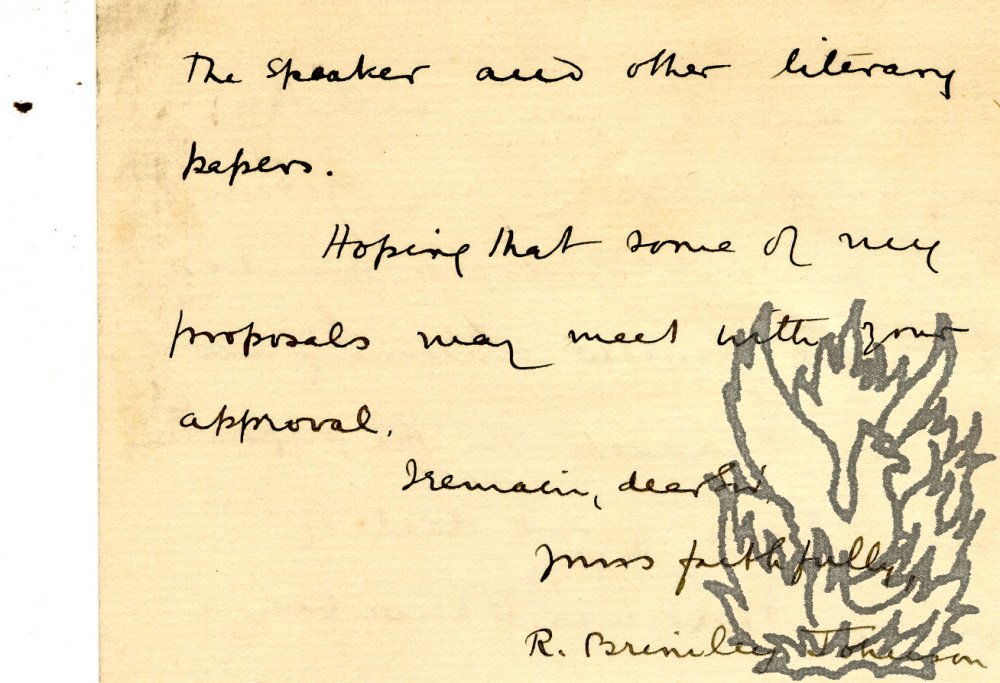 The Speaker and other literary
papers.
Hoping that some of my
proposals may meet with your
approval.
I remain, dear Sir,
yours faithfully,
R. Brimley Johnson